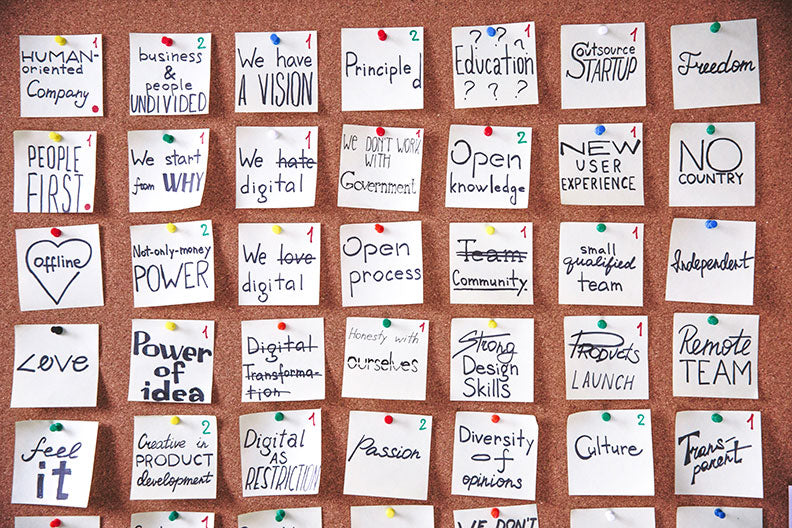 HUMAN-
oriented
Company
1
business
&
people
UNDIVIDED
2
We have
A VISION
1
Principled
2
? ? ?
Education
? ? ?
1
Outsource
STARTUP
1
Freedom
PEOPLE
FIRST.
1
We start
from WHY
1
We hate
digital
1
WE DON'T WORK
WITH
Government
1
Open
knowledge
2
NEW
USER
EXPERIENCE
1
NO
COUNTRY
offline
Not-only-money
POWER
2
We love
digital
1
Open
process
1
Team
Community
1
small
qualified
team
1
Independent
LOVE
Power
of
idea
1
Digital
Transforma-
tion
Honesty with
ourselves
1
Strong
Design
Skills
Products
LAUNCH
1
Remote
TEAM
feel
it
Creative in
PRODUCT
development
2
Digital
AS
RESTRICTION
1
Passion
2
Diversity
of
opinions
Culture
2
Trans-
parent
1
1
1
2
WE DON'T